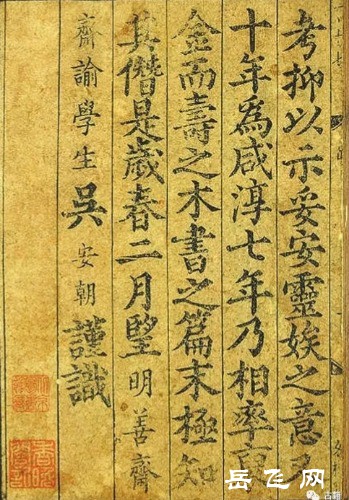 考抑以示妥安靈娭之意
十年為咸淳七年乃相率
金而壽之木書之篇末極知
其僭是歲春二月望明善齋
齋諭學生吳安朝謹識
岳飞网